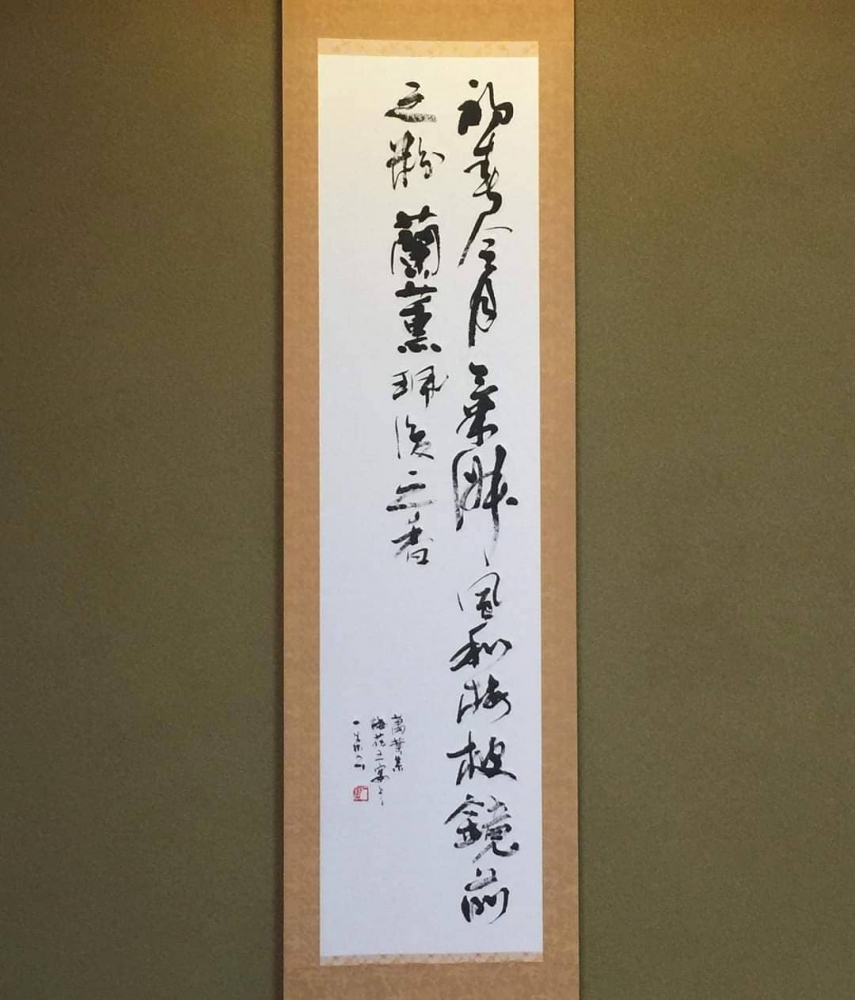 初春令月氣淑風和梅披鏡前
之粉蘭薫珮後之香
萬葉集
梅花之宴より